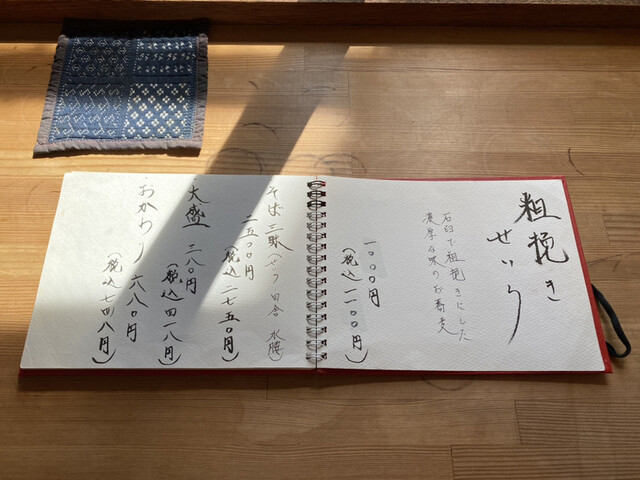 粗挽き
せいろ
石臼で粗挽きにした
濃厚な味のお蕎麦
一〇〇〇円
(税込一一〇〇円)
そば三昧(せいろ 田舎
二五〇〇円
(税込二七五〇円)
大盛 三八〇円
(税込四一八円)
おかわり 六八〇円
(税込七四八円)